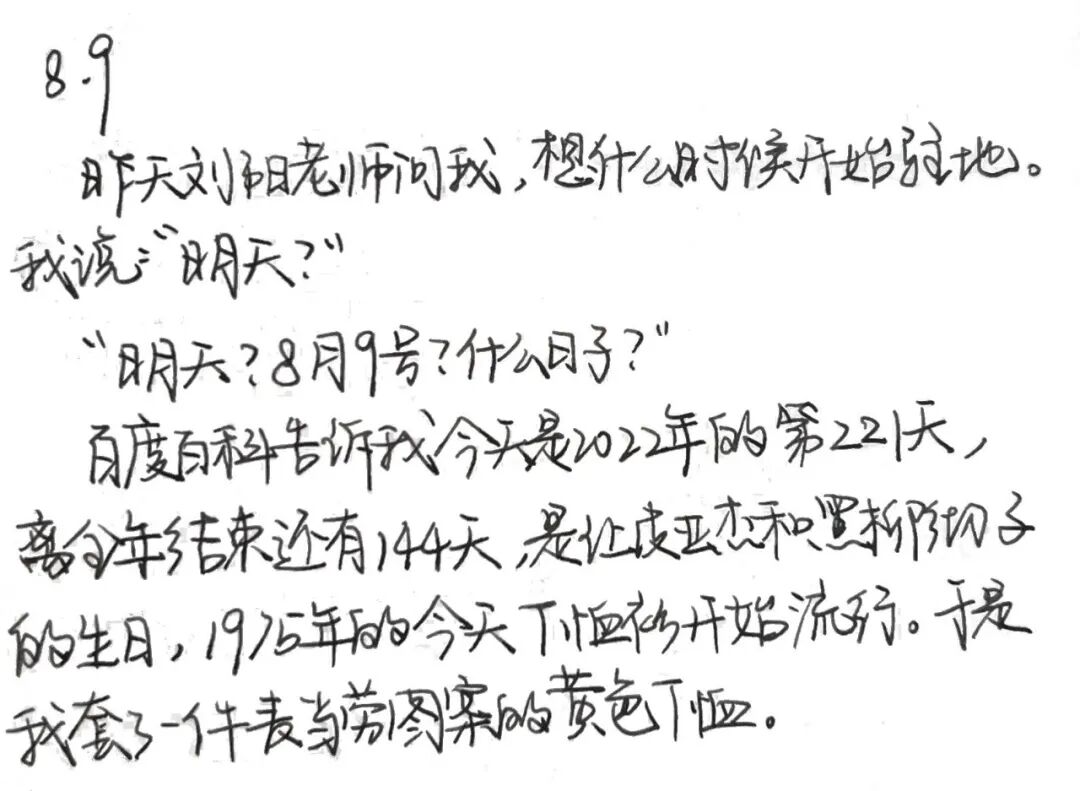 8.9
昨天刘阳老师问我，想什么时候开始驻地。
我说：“明天？”
“明天？8月9号？什么日子？”
百度百科告诉我今天是2022年的第221天，
离全年结束还有144天，是让·皮亚杰和黑柳彻子
的生日，1975年的今天T恤衫开始流行。于是
我套了一件麦当劳图案的黄色T恤。